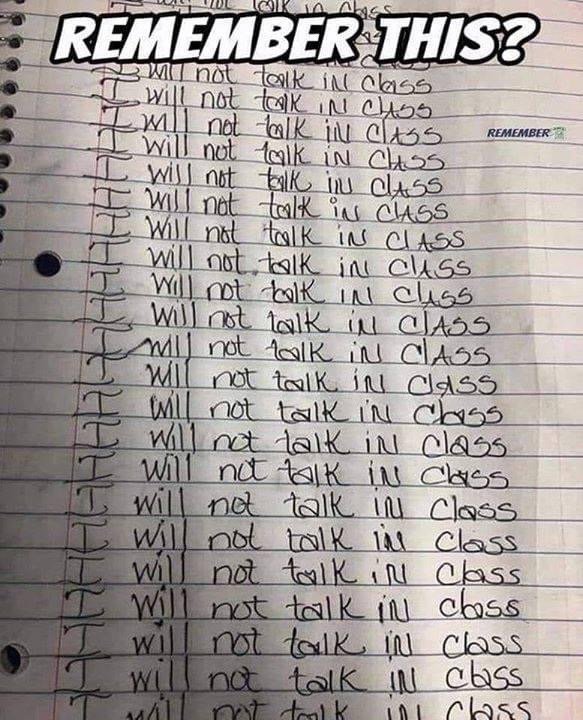 not talk in Class
REMEMBER THIS?
I will not talk iN Class
I will not talk iN ClASS
I will not talk iN ClASS
REMEMBER
I will not talk iN ClASS
I will not talk iN ClASS
I will not talk iN ClASS
I will not talk iN ClASS
I will not talk iN ClASS
I will not talk iN ClASS
I will not talk iN ClASS
I will not talk iN ClASS
I will not talk iN ClASS
I will not talk iN Class
I will not talk iN Class
I will not talk iN Class
I will not talk iN Class
I will not talk iN Class
I will not talk iN Class
I will not talk iN Class
I will not talk iN Class
I will not talk iN Class
I will not talk iN Class